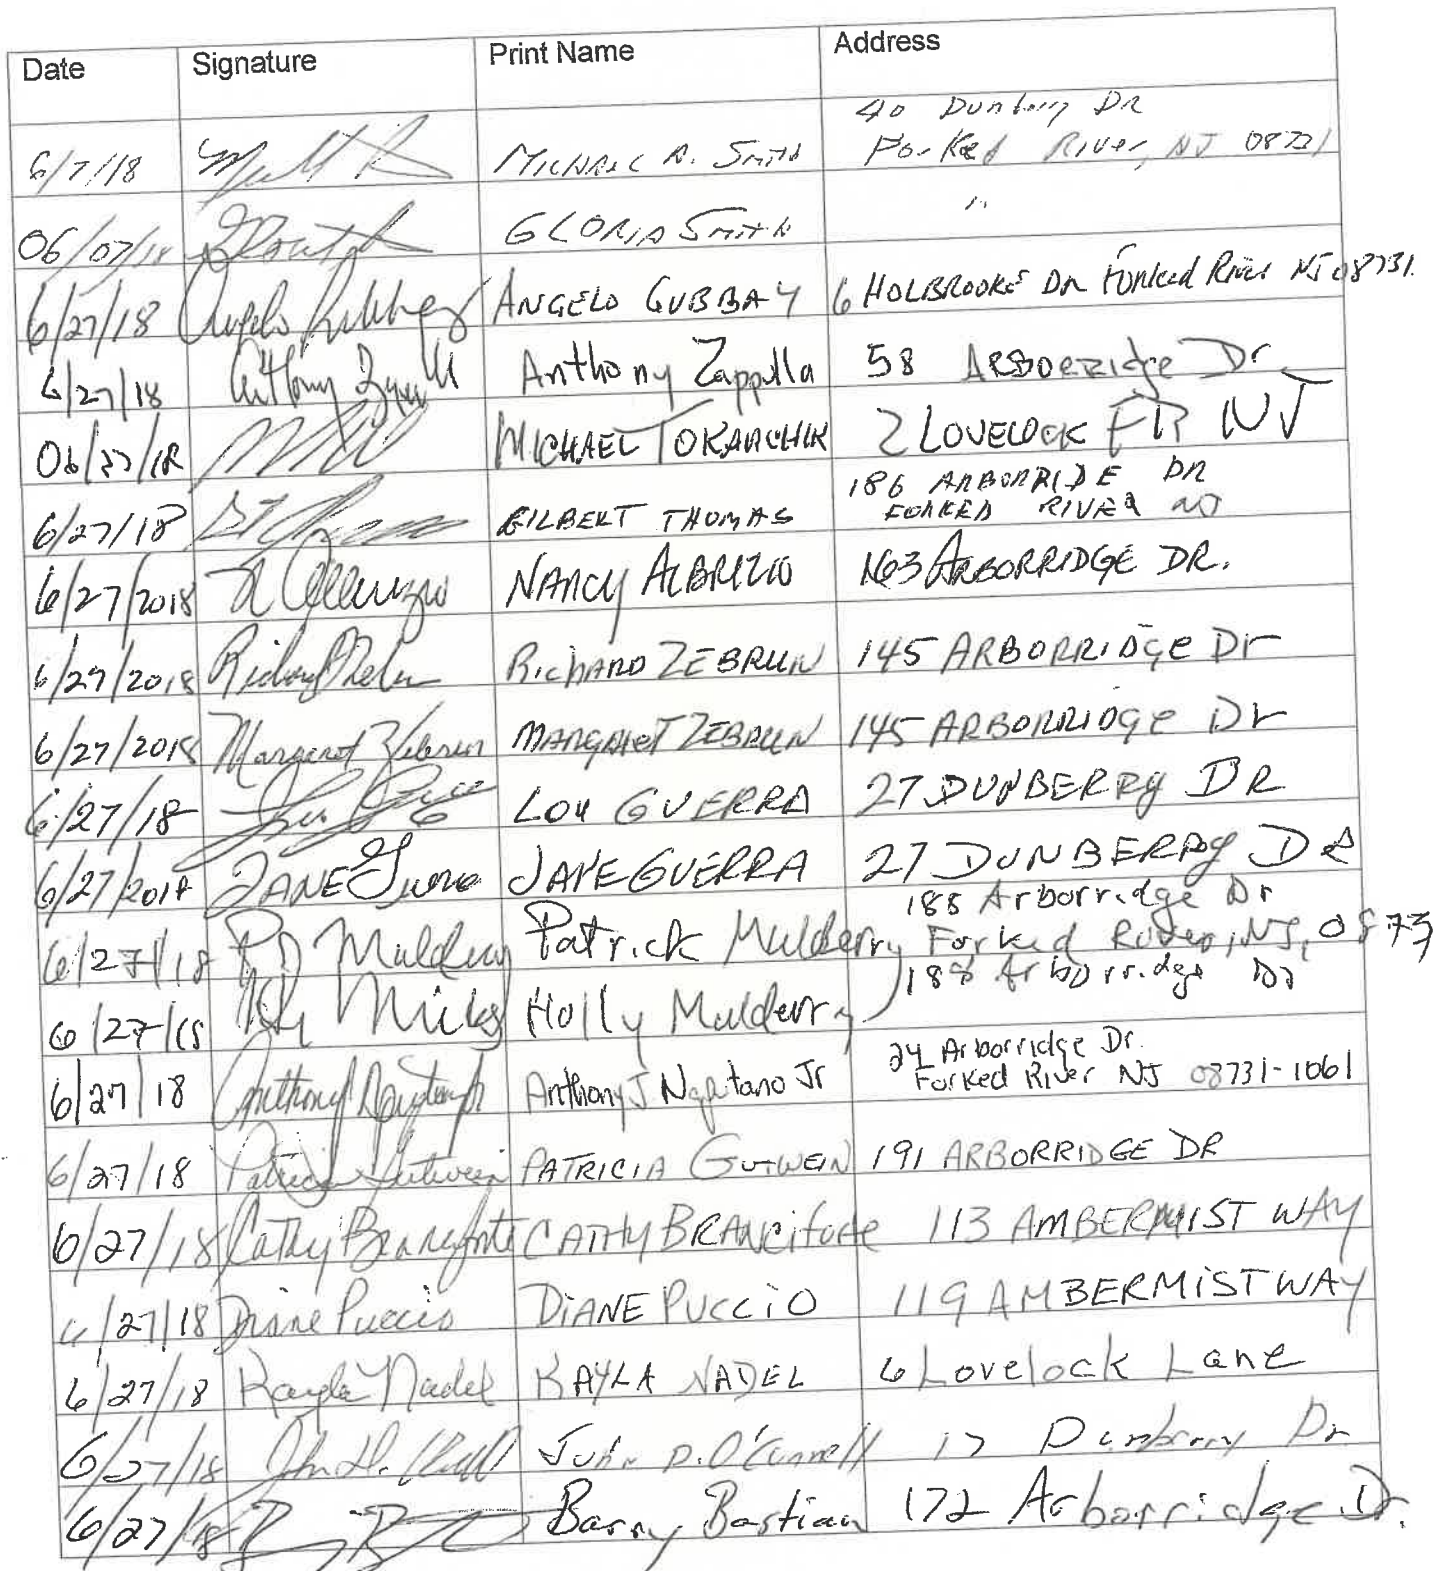 Date Signature Print Name Address
40 Dunberry DR
6/7/18 MICHAEL A. SMITH Forked River, NJ 08731
06/07/18 GLORIA SMITH "
6/27/18 Angelo Gubbay ANGELO GUBBAY 6 HOLBROOKE DR Forked River NJ 08731
6/27/18 Anthony Zappulla Anthony Zappulla 58 ARBORRIDGE Dr
06/27/18 MICHAEL TOKARCHIK 2 LOVELOCK FR NJ
186 ARBORRIDE DR
6/27/18 GILBERT THOMAS FORKED RIVER NJ
6/27/2018 N Albrizio NANCY ALBRIZIO 163 ARBORRIDGE DR.
6/27/2018 Richard Zebrun RICHARD ZEBRUN 145 ARBORRIDGE Dr
6/27/2018 Margaret Zebrun MARGARET ZEBRUN 145 ARBORRIDGE Dr
6/27/18 LOU GUERRA 27 DUNBERRY DR
6/27/2018 JANE Guerra JANE GUERRA 27 DUNBERRY DR
188 Arborridge Dr
6/27/18 P Mulderry Patrick Mulderry Forked River, NJ, 0873
188 Arborridge Dr
6/27/18 Holly Mulderry
24 Arborridge Dr.
6/27/18 Anthony J Napitano Jr Forked River NJ 08731-1061
6/27/18 Patricia Gutwein PATRICIA GUTWEIN 191 ARBORRIDGE DR
6/27/18 Cathy Branciforte CATHY BRANCIforte 113 AMBERMIST WAY
6/27/18 Diane Puccio DIANE PUCCIO 119 AMBERMIST WAY
6/27/18 Kayla Nadel KAYLA NADEL 6 Lovelock Lane
6/27/18 John D. O'Connell 17 Dunberry Dr
6/27/18 Barry Bastian 172 Arborridge Dr.